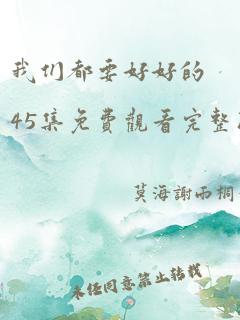 我们都要好好的
45集免費觀看完整
莫海謝雨桐
未经同意禁止转载